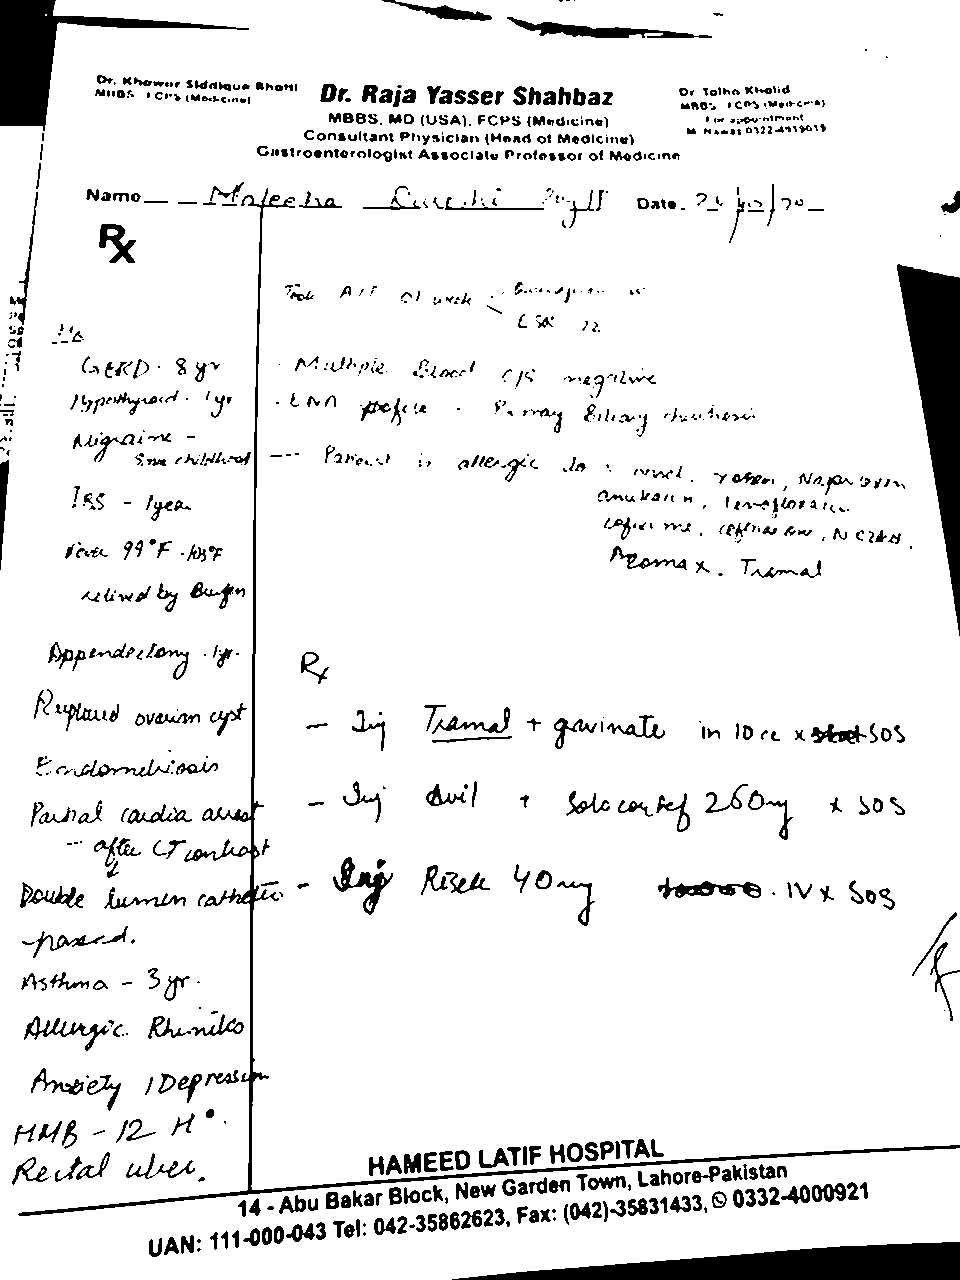 Dr. Khawar Siddique Bhatti
MBBS, FCPS (Medicine)
Dr. Raja Yasser Shahbaz
MBBS, MD (USA), FCPS (Medicine)
Consultant Physician (Head of Medicine)
Gastroenterologist Associate Professor of Medicine
Dr Talha Khalid
MBBS, FCPS (Medicine)
For appointment
Name Maleeha Qureshi Date.
Rx
Took ATT 01 week
ESR 72
GERD - 8 yr
Hypothyroid - 1yr
Migraine -
Since childhood
IBS - 1year
Fever 99°F - 103°F
relieved by Brufen
Appendectomy - 1yr.
Ruptured ovarian cyst
Endometriosis
Partial cardia arrest
-- after CT contrast
Double lumen catheter
passed.
Asthma - 3 yr.
Allergic Rhinitis
Anxiety / Depression
HMB - 12 H°.
Rectal ulcer.
- Multiple Blood C/S negative
- ENA profile - Primary Biliary
--- Patient is allergic to , Naproxen
, levofloxacin
cefixime, , NSAID,
Azomax, Tramal
Rx
- Inj Tramal + gravinate in 10cc x SOS
- Inj Avil + Solocortef 250mg x SOS
- Inj Risek 40mg IV x SOS
HAMEED LATIF HOSPITAL
14 - Abu Bakar Block, New Garden Town, Lahore-Pakistan
UAN: 111-000-043 Tel: 042-35862623, Fax: (042)-35831433, 0332-4000921